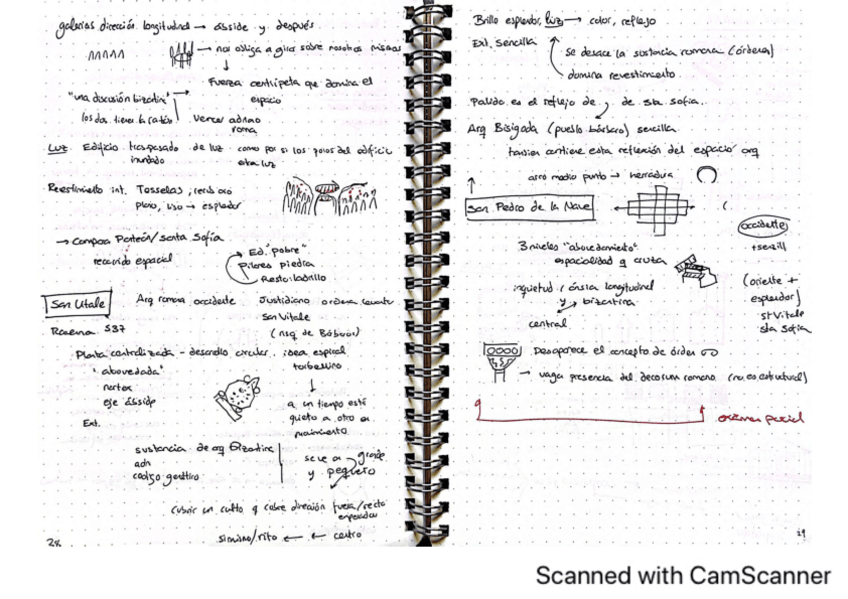 galerías dirección longitudinal → ábside y después
→ nos obliga a girar sobre nosotros mismos
Fuerza centrípeta que domina el
espacio
"una discusión bizantina"
los dos tienen la razón
vence adriano
roma
Luz Edificio traspasado de luz como por si los poros del edificio
inundado
entra luz
Revestimiento int. Tosselas,
plano, liso → esplendor
→ Compara Panteón/Santa Sofía
recorrido espacial
Ed. "pobre"
Pilares piedra
Resto: ladrillo
San Vitale
Arq romana occidente
Justidiano ordena levantar
San Vitale
Ravena 537
Planta centralizada - desarrollo circular, idea espiral
torbellino
"abovedada"
nartex
eje ábside
Ext.
a un tiempo está
quieto a otro en
movimiento
sustancia de arq Bizantina
adn
código genético
se ve a grande
y pequeño
cubrir un culto q cobre dirección fuera/recto
← ← centro
28
Brillo esplendor, luz → color, reflejo
Ext. sencilla
se desace la sustancia romana (órdenes)
domina revestimiento
Palido es el reflejo de , de sta sofía.
Arq Bisigoda (pueblo bárbaro) sencilla
tambien contiene esta reflexión del espacio arq
arco medio punto → herradura
San Pedro de la Nave
occidente
+ sencill
3 niveles "abovedamiento"
espacialidad q cruza
inquetud / ansia longitudinal
y → bizantina
central
(oriente +
esplendor)
st Vitale
sta Sofia
Desaparece el concepto de órden
→ vaga presencia del decorum romano (no es estructural)
exámen parcial
29
Scanned with CamScanner